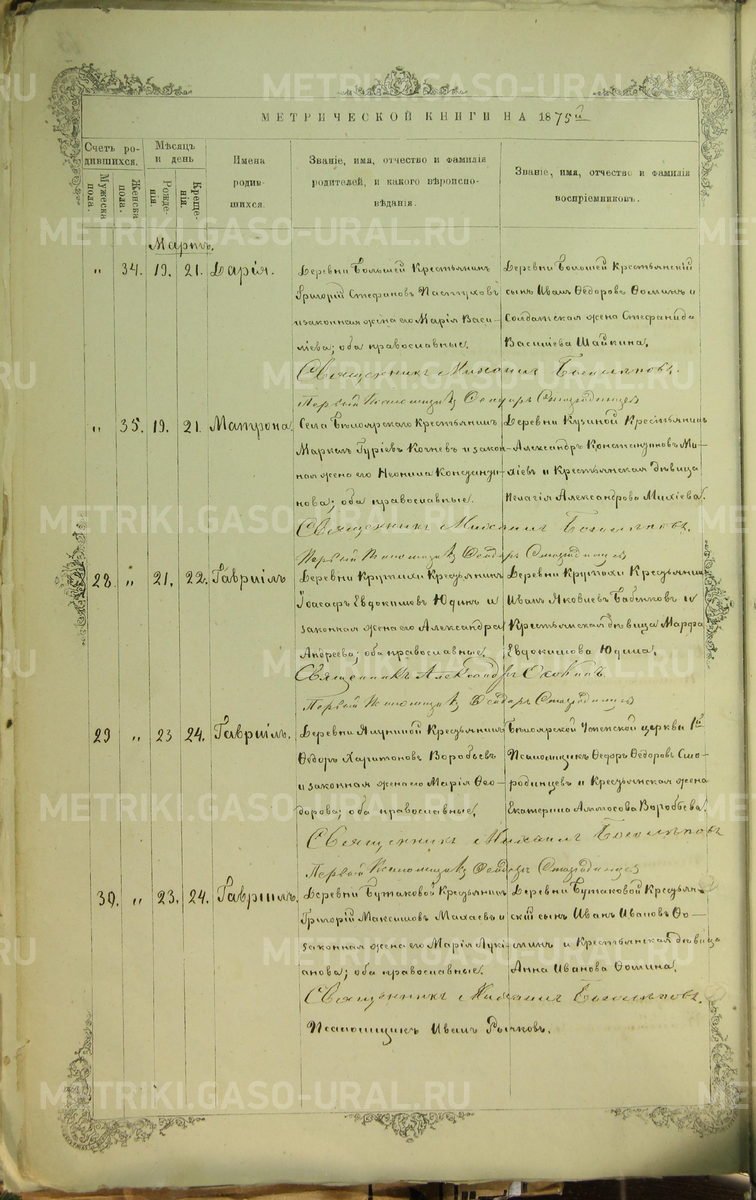 МЕТРИЧЕСКОЙ КНИГИ НА 1875й
Счетъ родившихся.
Мужеска пола.
Женска пола.
Мѣсяцъ и день
Рожденія.
Крещенія.
Имена родившихся.
Званіе, имя, отчество и фамилія родителей, и какого вѣроисповѣданія.
Званіе, имя, отчество и фамилія воспріемниковъ.
Мартъ.
" 34. 19. 21. Дарія.
Деревни Крестьянинъ
Григорій Стефановъ Пастуховъ
и законная жена его Марія Васи-
ліева; оба православные.
Деревни Крестьянскій
сынъ Иванъ Ѳедоровъ Ѳоминъ и
Солдатская жена Стефанида
Васильева Шайкина.
Священникъ Михаилъ
Первый Псаломщикъ Ѳеодоръ Смородинцевъ
" 35. 19. 21. Матрона.
Села Бѣлоярскаго Крестьянинъ
Маркелъ Гуріевъ Кочневъ и закон-
ная жена его Неонила Константи-
нова; оба православные.
Деревни Крестьянинъ
Александръ Константиновъ Ми-
хіевъ и Крестьянская дѣвица
Пелагія Александрова Михіева.
Священникъ Михаилъ
Первый Псаломщикъ Ѳеодоръ Смородинцевъ
28. " 21. 22. Гавріилъ
Деревни Крутихи Крестьянинъ
Іоасафъ Евдокимовъ Юдинъ и
законная жена его Александра
Андреева; оба православные.
Деревни Крутихи Крестьянинъ
Иванъ Яковлевъ Бабенковъ и
Крестьянская дѣвица Марѳа
Евдокимова Юдина.
Священникъ Александръ
Первый Псаломщикъ Ѳеодоръ Смородинцевъ
29 " 23 24. Гавріилъ.
Деревни Ялуниной Крестьянинъ
Ѳедоръ Харитоновъ Воробьевъ
и законная жена его Марія Ѳео-
дорова; оба православные.
Бѣлоярской церкви 1й
Псаломщикъ Ѳедоръ Ѳедоровъ Смо-
родинцевъ и Крестьянская жена
Екатерина Аммосова Воробьева.
Священникъ Михаилъ
Первый Псаломщикъ Ѳеодоръ Смородинцевъ
30. " 23. 24. Гавріилъ.
Деревни Бутаковой Крестьянинъ
Григорій Максимовъ Махаевъ и
законная жена его Марія Луки-
анова; оба православные.
Деревни Бутаковой Крестьян-
скій сынъ Иванъ Ивановъ Ѳо-
минъ и Крестьянская дѣвица
Анна Иванова Ѳомина.
Священникъ Михаилъ
Псаломщикъ Иванъ Рычковъ.
METRIKI.GASO-URAL.RU